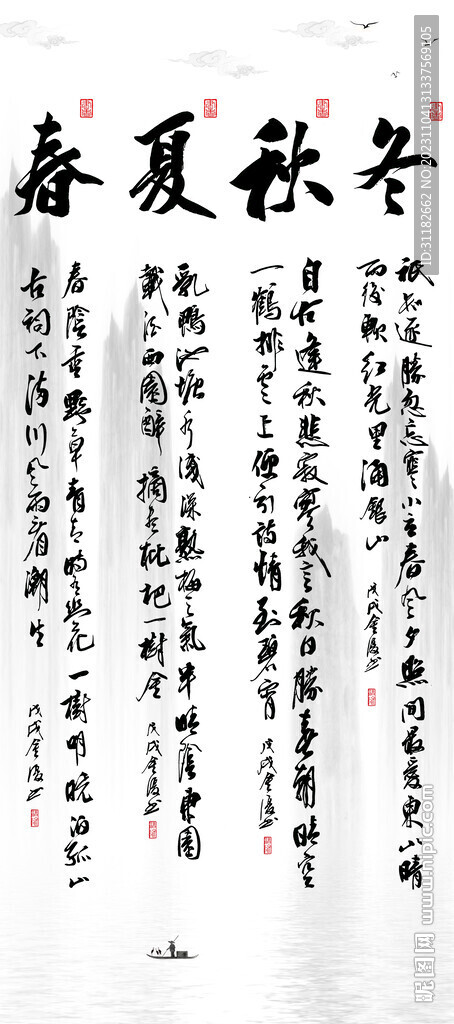 春夏秋冬
春陰垂野草青青時有幽花一樹明晚泊孤舟
古祠下滿川風雨看潮生
戊戌
乳鴨池塘水淺深熟梅天氣半晴陰東園
載酒西園醉摘盡枇杷一樹金
戊戌
自古逢秋悲寂寥我言秋日勝春朝晴空
一鶴排雲上便引詩情到碧霄
戊戌
祇知逐勝忽忘寒小立春風夕照間最愛東山晴
後軟紅光里涌銀山
戊戌
ID:31182662 NO:20231104131337569105
昵图网 www.nipic.com